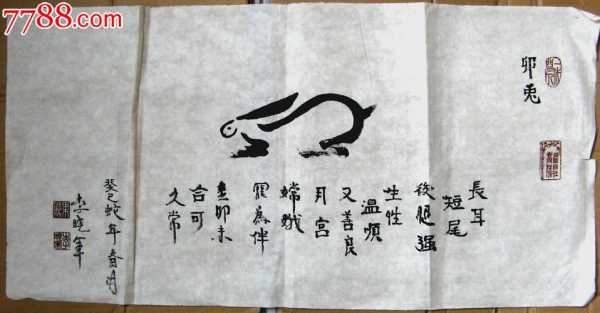 7788.com
卯兔
長耳
短尾
後腿强
生性
温順
又善良
月宫
嫦娥
為伴
亥卯未
合可
久常
癸巳蛇年春月
李晓